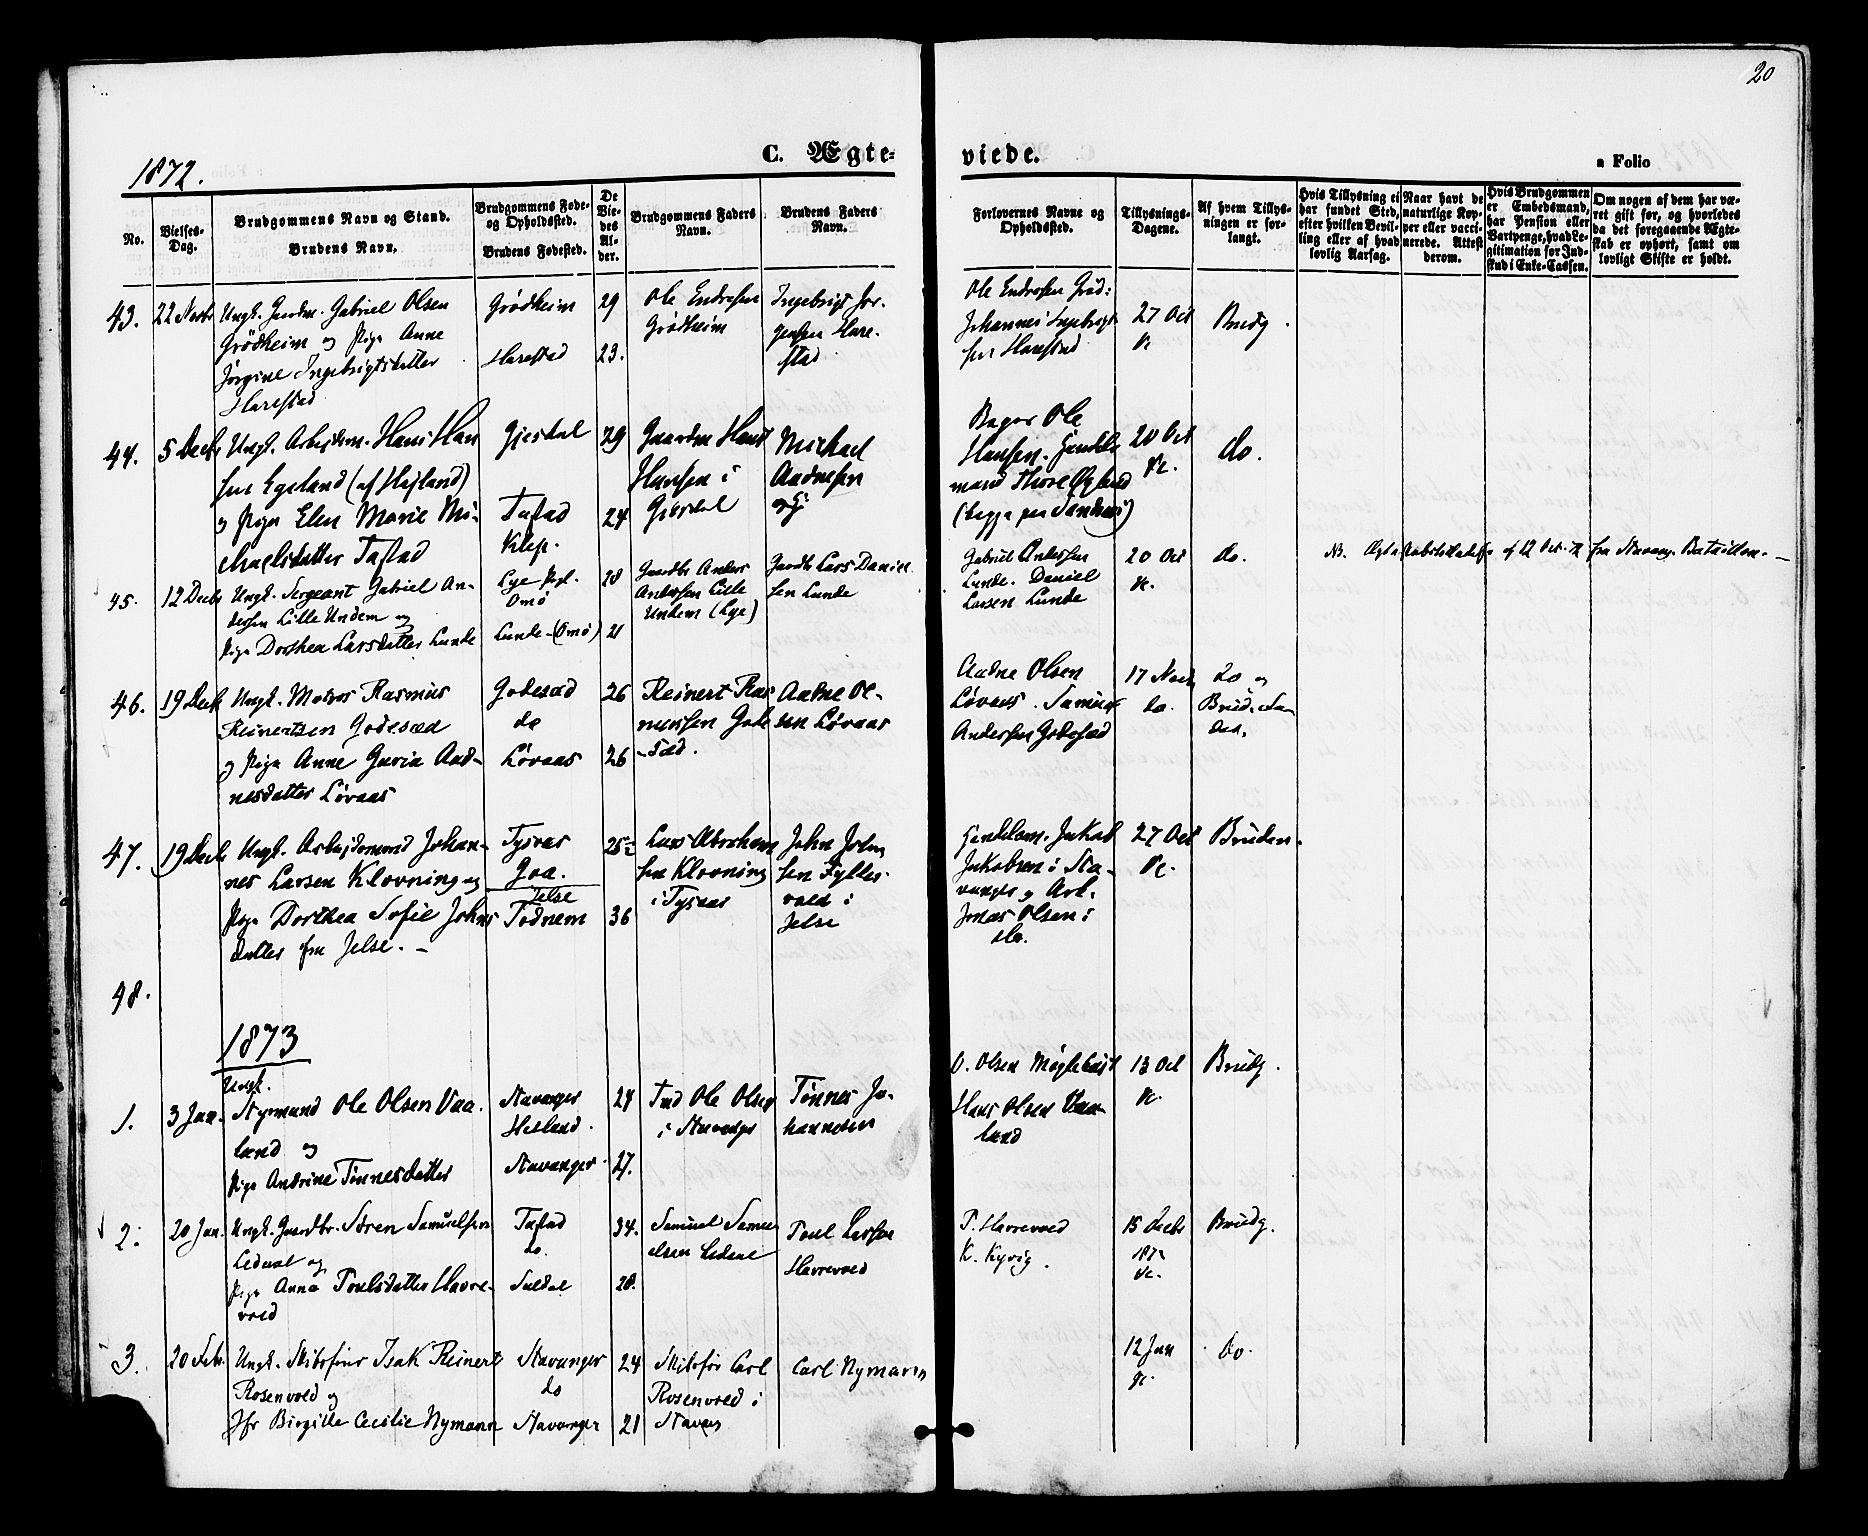 20
1872.
C. Ægte-
viede.
a Folio
No.
Vielses-
Dag.
Brudgommens Navn og Stand.
Brudens Navn.
Brudgommens Føde-
og Opholdssted.
Brudens Fødested.
De
Vie-
des
Al-
der.
Brudgommens Faders
Navn.
Brudens Faders
Navn.
Forlovernes Navne og
Opholdssted.
Tillysnings-
Dagene.
Af hvem Tillys-
ningen er for-
langt.
Hvis Tillysning ei
har fundet Sted,
efter hvilken Bevil-
ling eller af hvad
lovlig Aarsag.
Naar havt de
naturlige Kop-
per eller vacci-
nerede. Attest
derom.
Hvis Brudgommen
er Embedsmand,
har Pension eller
Vartpenge, hvad Le-
gitimation for Ind-
skud i Enke-Cassen.
Om nogen af dem har væ-
ret gift før, og hvorledes
da det foregaaende Ægte-
skab er ophørt, samt om
lovligt Skifte er holdt.
43. 22 Novbr
Ungk. Gaardm. Gabriel Olsen
Grødheim og Pige Anne
Jørgine Ingebrigtsdatter
Harestad
Grødheim
Harestad
29
23.
Ole Endresen
Grødheim
Ingebrigt Jør-
gensen Hare-
stad
Ole Endresen Grød:
Johannes Ingebrigt
sen Harestad
27 Oct
Brudg.
44. 5 Decb
Ungk. Arbejdsm. Hans Han
sen Egeland (af Hejland)
og Pige Elen Marie Mi-
chaelsdatter Tastad
Gjesdal
Tastad
Klep.
29
24
Gaardm Hans
Hansen i
Gjesdal
Michael
Aadnesen
Bager Ole
Hansen. Handels
mand Thore
(begge paa Sandnes)
20 Oct
do.
45. 12 Decbr
Ungk. Sergeant Gabriel An-
dersen Lille Undem og
Pige Dorthea Larsdatter Lunde
Lye
Omø
Lunde (Omø)
28
21
Gaardbr Anders
Andersen Lille
Undem (Lye)
Gaardbr Lars Daniel
sen Lunde
Gabriel Andersen
Lunde. Daniel
Larsen Lunde
20 Oct
do.
NB. af 12 Oct. 72 fra Stavang. Batallion.
46. 19 Decb
Ungk. Matros Rasmus
Reinertsen Godesæd
og Pige Anne Guria Aad-
nesdatter Løvaas
Godesæd
do
Løvaas
26
26
Reinert Ras
mussen Gode
-sæd.
Aadne Ol-
sen Løvaas
Aadne Olsen
Løvaas. Samuel
Andersen Godesæd
17 Nov
do.
do og
Brud.
47. 19 Decb
Ungk. Arbejdsmand Johan-
nes Larsen Klovning og
Pige Dorthea Sofie Johns
datter fra Jelse. -
Tysvær
Goa.
Jelse
Todnem
25
36
Lars Abraham
sen Klovning
i Tysvær
John John
sen Fylles-
vold i
Jelse
Handelsm. Jakob
Jakobsen i Sta-
vanger og Arb.
Jonas Olsen i
do.
27 Oct
Bruden.
48.
1873
1. 3 Jan.
Ungk.
Styrmand Ole Olsen Vaa-
land og
Pige Andrine Tønnesdatter
Stavanger
Hetland.
Stavanger.
24
27.
Ole Olsen
i Stavanger
Tønnes Jo-
hannesen
O. Olsen Møglebust
Hans Olsen Vaa-
land
13 Oct
Brudg.
2. 20 Jan.
Ungk. Gaardbr. Søren Samuelsen
Ledaal og
Pige Anna Poulsdatter Havre-
vold
Tastad
do.
Suldal
34.
28.
Samuel Samu
elsen Ledaal
Poul Larsen
Havrevold
P. Havrevold
K. Kyvig.
15 Decbr
1872
Brudg.
3. 20 Febr.
Ungk. Skibsfører Isak Reinert
Rosenvold og
Jfr Birgitte Cecilie Nymann
Stavanger
do
Stavanger
24
21
Skibsfør Carl
Rosenvold i
Stavan
Carl Nymann
12 Jan
do.